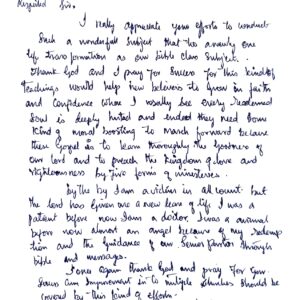 Respected Sir,
I really appreciate your efforts to conduct
Such a wonderfull subject that too anawly one
life Transformation as our bible class subject.
Thank God and I pray for success for this kind of
teachings would help new believers to grow in faith
and Confidence where I usually see every redeemed
Soul is deeply hunted and indeed they need some
kind of moral boosting to march forward because
these Gospel is to learn thoroughly the goodness of
our lord and to preach the kingdom of love and
righteousness by two forms of ministries.
by the by I am a victim in all count. but
the lord has given me a new lease of life. I was a
patient before now I am a doctor. I was a animal
before now almost an angel because of my redemp
tion and the Guidance of our Senior Pastor through
bible and messages.
I once again thank God and pray for you
Jesus am Improvement in to multiple churches should be
covered by this kind of efforts.